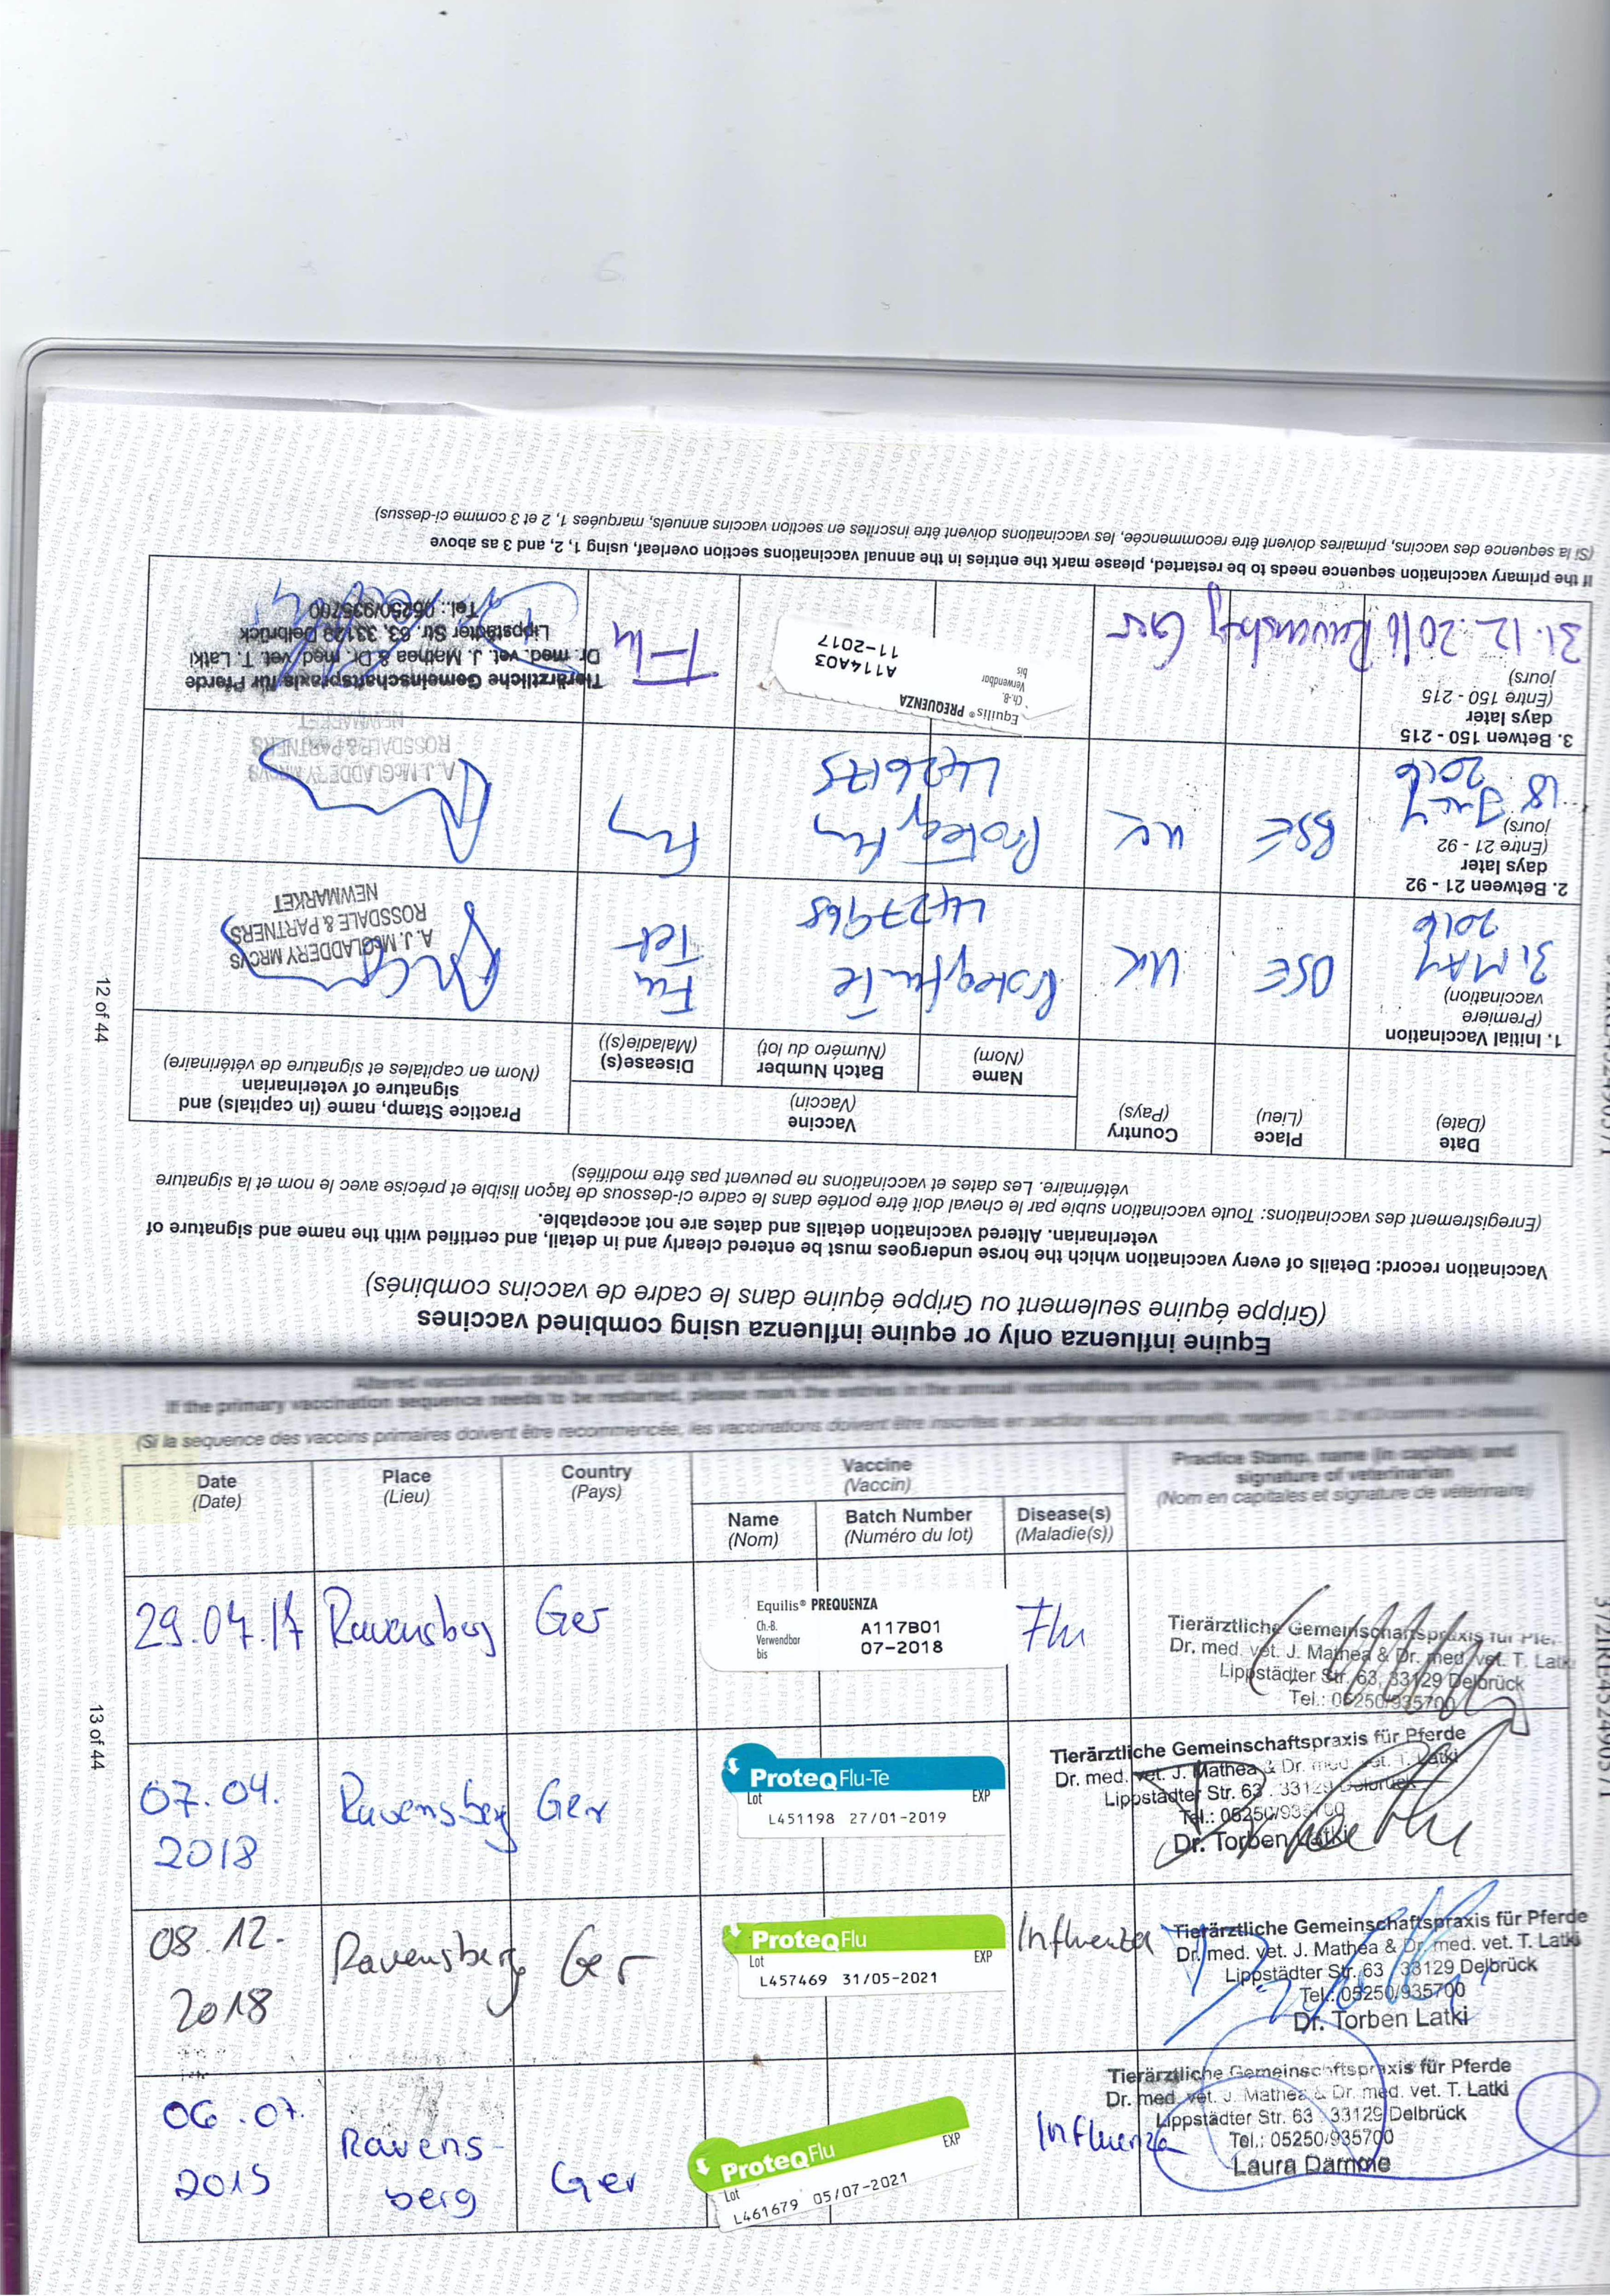 Equine influenza only or equine influenza using combined vaccines
(Grippe équine seulement ou Grippe équine dans le cadre de vaccins combinés)
Vaccination record: Details of every vaccination which the horse undergoes must be entered clearly and in detail, and certified with the name and signature of
veterinarian. Altered vaccination details and dates are not acceptable.
(Enregistrement des vaccinations: Toute vaccination subie par le cheval doit être portée dans le cadre ci-dessous de façon lisible et précise avec le nom et la signature
vétérinaire. Les dates et vaccinations ne peuvent pas être modifiés)
Date
(Date)
Place
(Lieu)
Country
(Pays)
Vaccine
(Vaccin)
Name
(Nom)
Batch Number
(Numéro du lot)
Disease(s)
(Maladie(s))
Practice Stamp, name (in capitals) and
signature of veterinarian
(Nom en capitales et signature de vétérinaire)
1. Initial Vaccination
(Première
vaccination)
31 MAY
2016
UK
Proteqflu Te
L427968
Flu
Tet
A. J. McGLADDERY MRCVS
ROSSDALE & PARTNERS
NEWMARKET
2. Between 21 - 92
days later
(Entre 21 - 92
jours)
18 July
2016
UK
Proteq Flu
L426175
Flu
A. J. McGLADDERY MRCVS
ROSSDALE & PARTNERS
NEWMARKET
3. Betwen 150 - 215
days later
(Entre 150 - 215
jours)
31.12.2016 Ravensberg Ger
Equilis® PREQUENZA
Ch.-B.
Verwendbar
bis
A114A03
11-2017
Flu
Tierärztliche Gemeinschaftspraxis für Pferde
Dr. med. vet. J. Mathea & Dr. med. vet. T. Latki
Lippstädter Str. 63, 33129 Delbrück
Tel.: 05250/935700
If the primary vaccination sequence needs to be restarted, please mark the entries in the annual vaccinations section overleaf, using 1, 2, and 3 as above
(Si la sequence des vaccins, primaires doivent être recommencée, les vaccinations doivent être inscrites en section vaccins annuels, marquées 1, 2 et 3 comme ci-dessus)
12 of 44
If the primary vaccination sequence needs to be restarted, please mark the entries in the annual vaccinations section
(Si la sequence des vaccins primaires doivent être recommencée, les vaccinations doivent être inscrites en section vaccins annuels,
Date
(Date)
Place
(Lieu)
Country
(Pays)
Vaccine
(Vaccin)
Name
(Nom)
Batch Number
(Numéro du lot)
Disease(s)
(Maladie(s))
Practice Stamp, name (in capitals) and
signature of veterinarian
(Nom en capitales et signature de vétérinaire)
29.07.17 Ravensberg Ger
Equilis® PREQUENZA
Ch.-B.
Verwendbar
bis
A117B01
07-2018
Flu
Tierärztliche Gemeinschaftspraxis für
Dr. med. vet. J. Mathea & Dr. med. vet. T. Latki
Lippstädter Str. 63, 33129 Delbrück
Tel.: 05250/935700
07.04.
2018
Ravensberg Ger
ProteqFlu-Te
Lot EXP
L451198 27/01-2019
Tierärztliche Gemeinschaftspraxis für Pferde
Dr. med. vet. J. Mathea & Dr. med. vet. T. Latki
Lippstädter Str. 63 . 33129 Delbrück
Tel.: 05250/935700
Dr. Torben Latki
08.12.
2018
Ravensberg Ger
ProteqFlu
Lot EXP
L457469 31/05-2021
Influenza
Tierärztliche Gemeinschaftspraxis für Pferde
Dr. med. vet. J. Mathea & Dr. med. vet. T. Latki
Lippstädter Str. 63 . 33129 Delbrück
Tel.: 05250/935700
Dr. Torben Latki
06.07.
2019
Ravens-
berg
Ger
ProteqFlu
Lot EXP
L461679 05/07-2021
Influenza
Tierärztliche Gemeinschaftspraxis für Pferde
Dr. med. vet. J. Mathea & Dr. med. vet. T. Latki
Lippstädter Str. 63 . 33129 Delbrück
Tel.: 05250/935700
Laura Damme
13 of 44